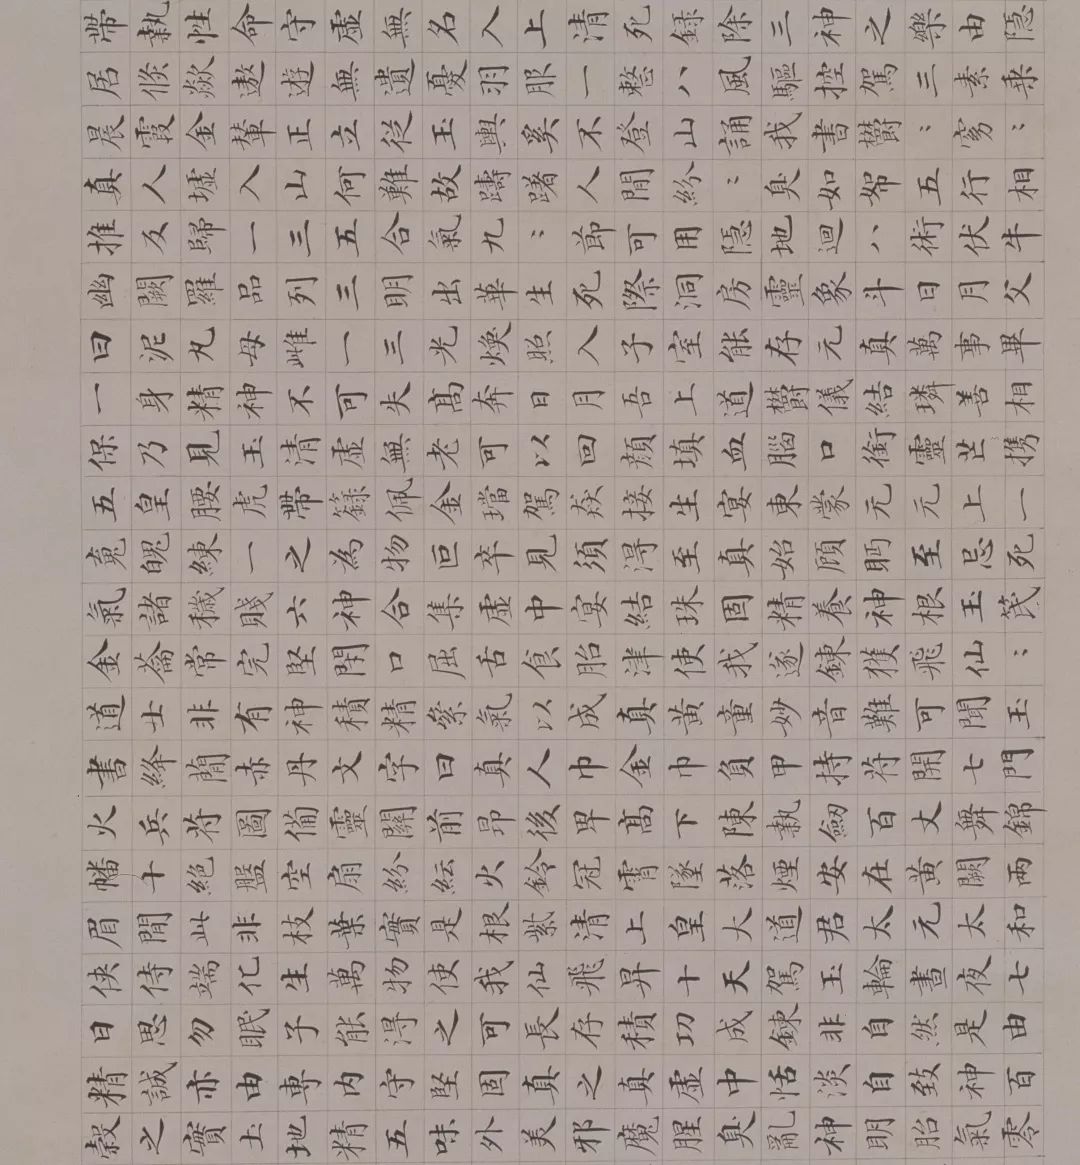 帶執性命守虛無名入上清死錄除三神之樂由隱
居倏欻遨遊無遺憂羽服一整八風驅控駕三素乘
晨霞金輦正立從玉輿奚不登山誦我書鬱〻窈〻
真人墟入山何難故躊躇人間紛〻臭如帤五行相
推反歸一三五合氣九〻節可用隱地迴八術伏牛
幽闕羅品列三明出華生死際洞房靈象斗日月父
曰泥丸母雌一三光煥照入子室能存元真萬事畢
一身精神不可失高奔日月吾上道鬱儀結璘善相
保乃見玉清虛無老可以回顏填血腦口銜靈芒攜
五皇腰虎帶籙佩金璫駕欻接生宴東蒙元元上一
䰟魄練一之為物叵卒見須得至真始顧眄至忌死
氣諸穢賤六神合集虛中宴結珠固精養神根玉笢
金籥常完堅閇口屈舌食胎津使我遂鍊獲飛仙〻
道士非有神積精絫氣以成真黃童妙音難可聞玉
書絳蕳赤丹文字曰真人巾金巾負甲持苻開七門
火兵苻圖備靈關前昂後卑高下陳執劒百丈舞錦
幡十絕盤空扇紛紜火鈴冠霄墜落煙安在黃闕兩
眉間此非枝葉實是根紫清上皇大道君太元太和
俠侍端化生萬物使我仙飛昇十天駕玉輪晝夜七
日思勿眠子能得之可長存積功成鍊非自然是由
精誠亦由專內守堅固真之真虛中恬淡自致神百
穀之實土地精五味外美邪魔腥臭亂神明胎氣零